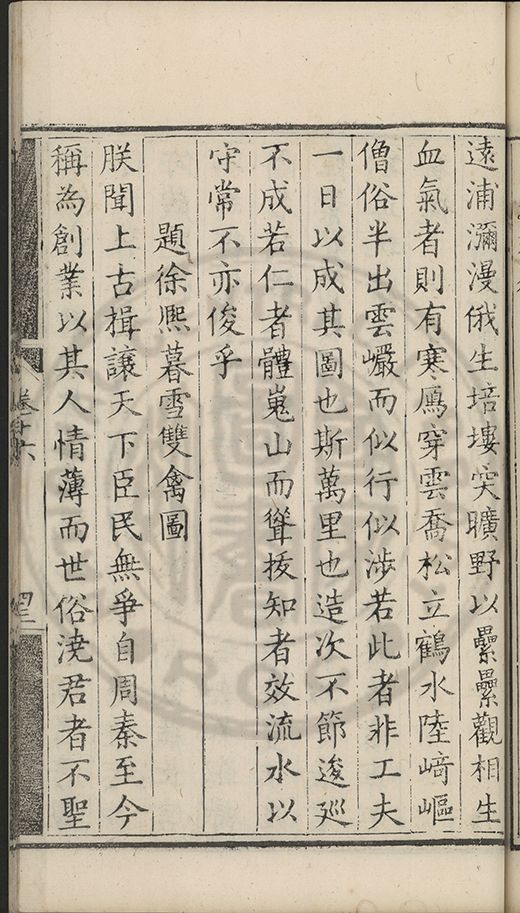 遠浦瀰漫俄生培塿突曠野以纍纍觀相生
血氣者則有寒鴈穿雲喬松立鶴水陸﨑嶇
僧俗半出雲巗而似行似涉若此者非工夫
一日以成其圖也斯萬里也造次不節逡廵
不成若仁者體嵬山而聳拔知者效流水以
守常不亦俊乎
題徐熙暮雪雙禽圖
朕聞上古揖讓天下臣民無爭自周秦至今
稱為創業以其人情薄而世俗澆君者不聖
卷十六